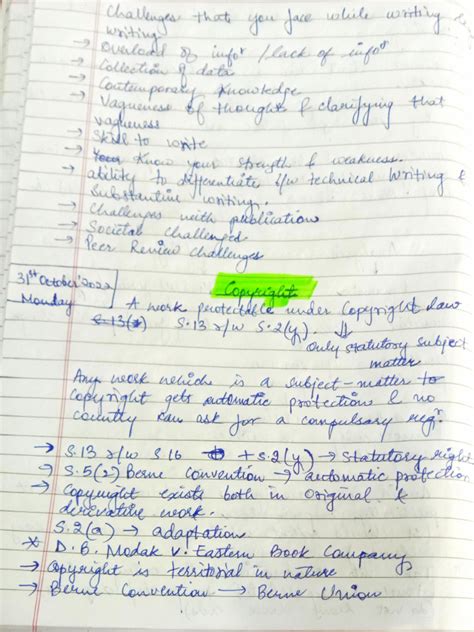 Challenges that you face while writing.
writing.
→ Overload of infoⁿ / lack of infoⁿ
→ Collection of data
→ Contemporary Knowledge
→ Vagueness of thoughts & clarifying that
vagueness
→ Skill to write
→ Know your strength & weakness.
→ ability to differentiate b/w technical writing &
Substantive writing.
→ Challenges with publication
→ Societal challenged
→ Peer Review challenges
31st October'2022
Monday
Copyright
A work protectable under Copyright law
S.13 r/w S.2(y). ⇓
Only statutory subject
matter
Any work which is a subject-matter to
copyright gets automatic protection & no
country can ask for a compulsary regⁿ.
→ S.13 r/w S 16 + S.2(y) → Statutory right
→ S.5(2) Berne Convention → automatic protection
→ Copyright exists both in Original &
derivative work.
S.2(a) → adaptation
* D.B. Modak v. Eastern Book Company
→ Copyright is territorial in nature
→ Berne Convention → Berne Union